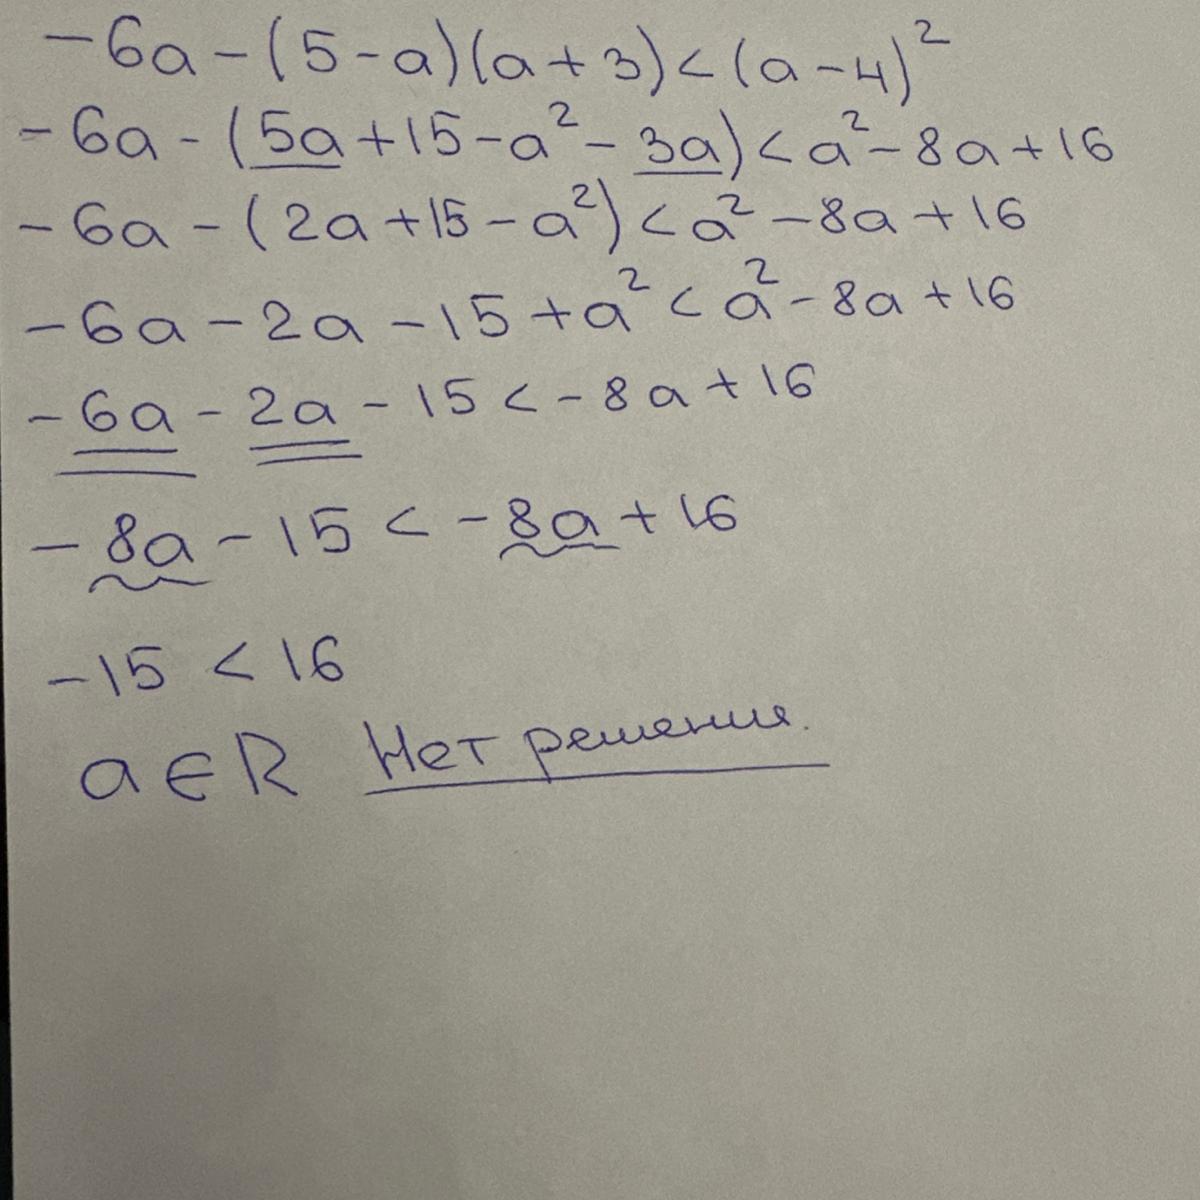 -6a-(5-a)(a+3)<(a-4)²
-6a-(5a+15-a²-3a)<a²-8a+16
-6a-(2a+15-a²)<a²-8a+16
-6a-2a-15+a²<a²-8a+16
-6a-2a-15<-8a+16
-8a-15<-8a+16
-15<16
a∈R Нет решения.